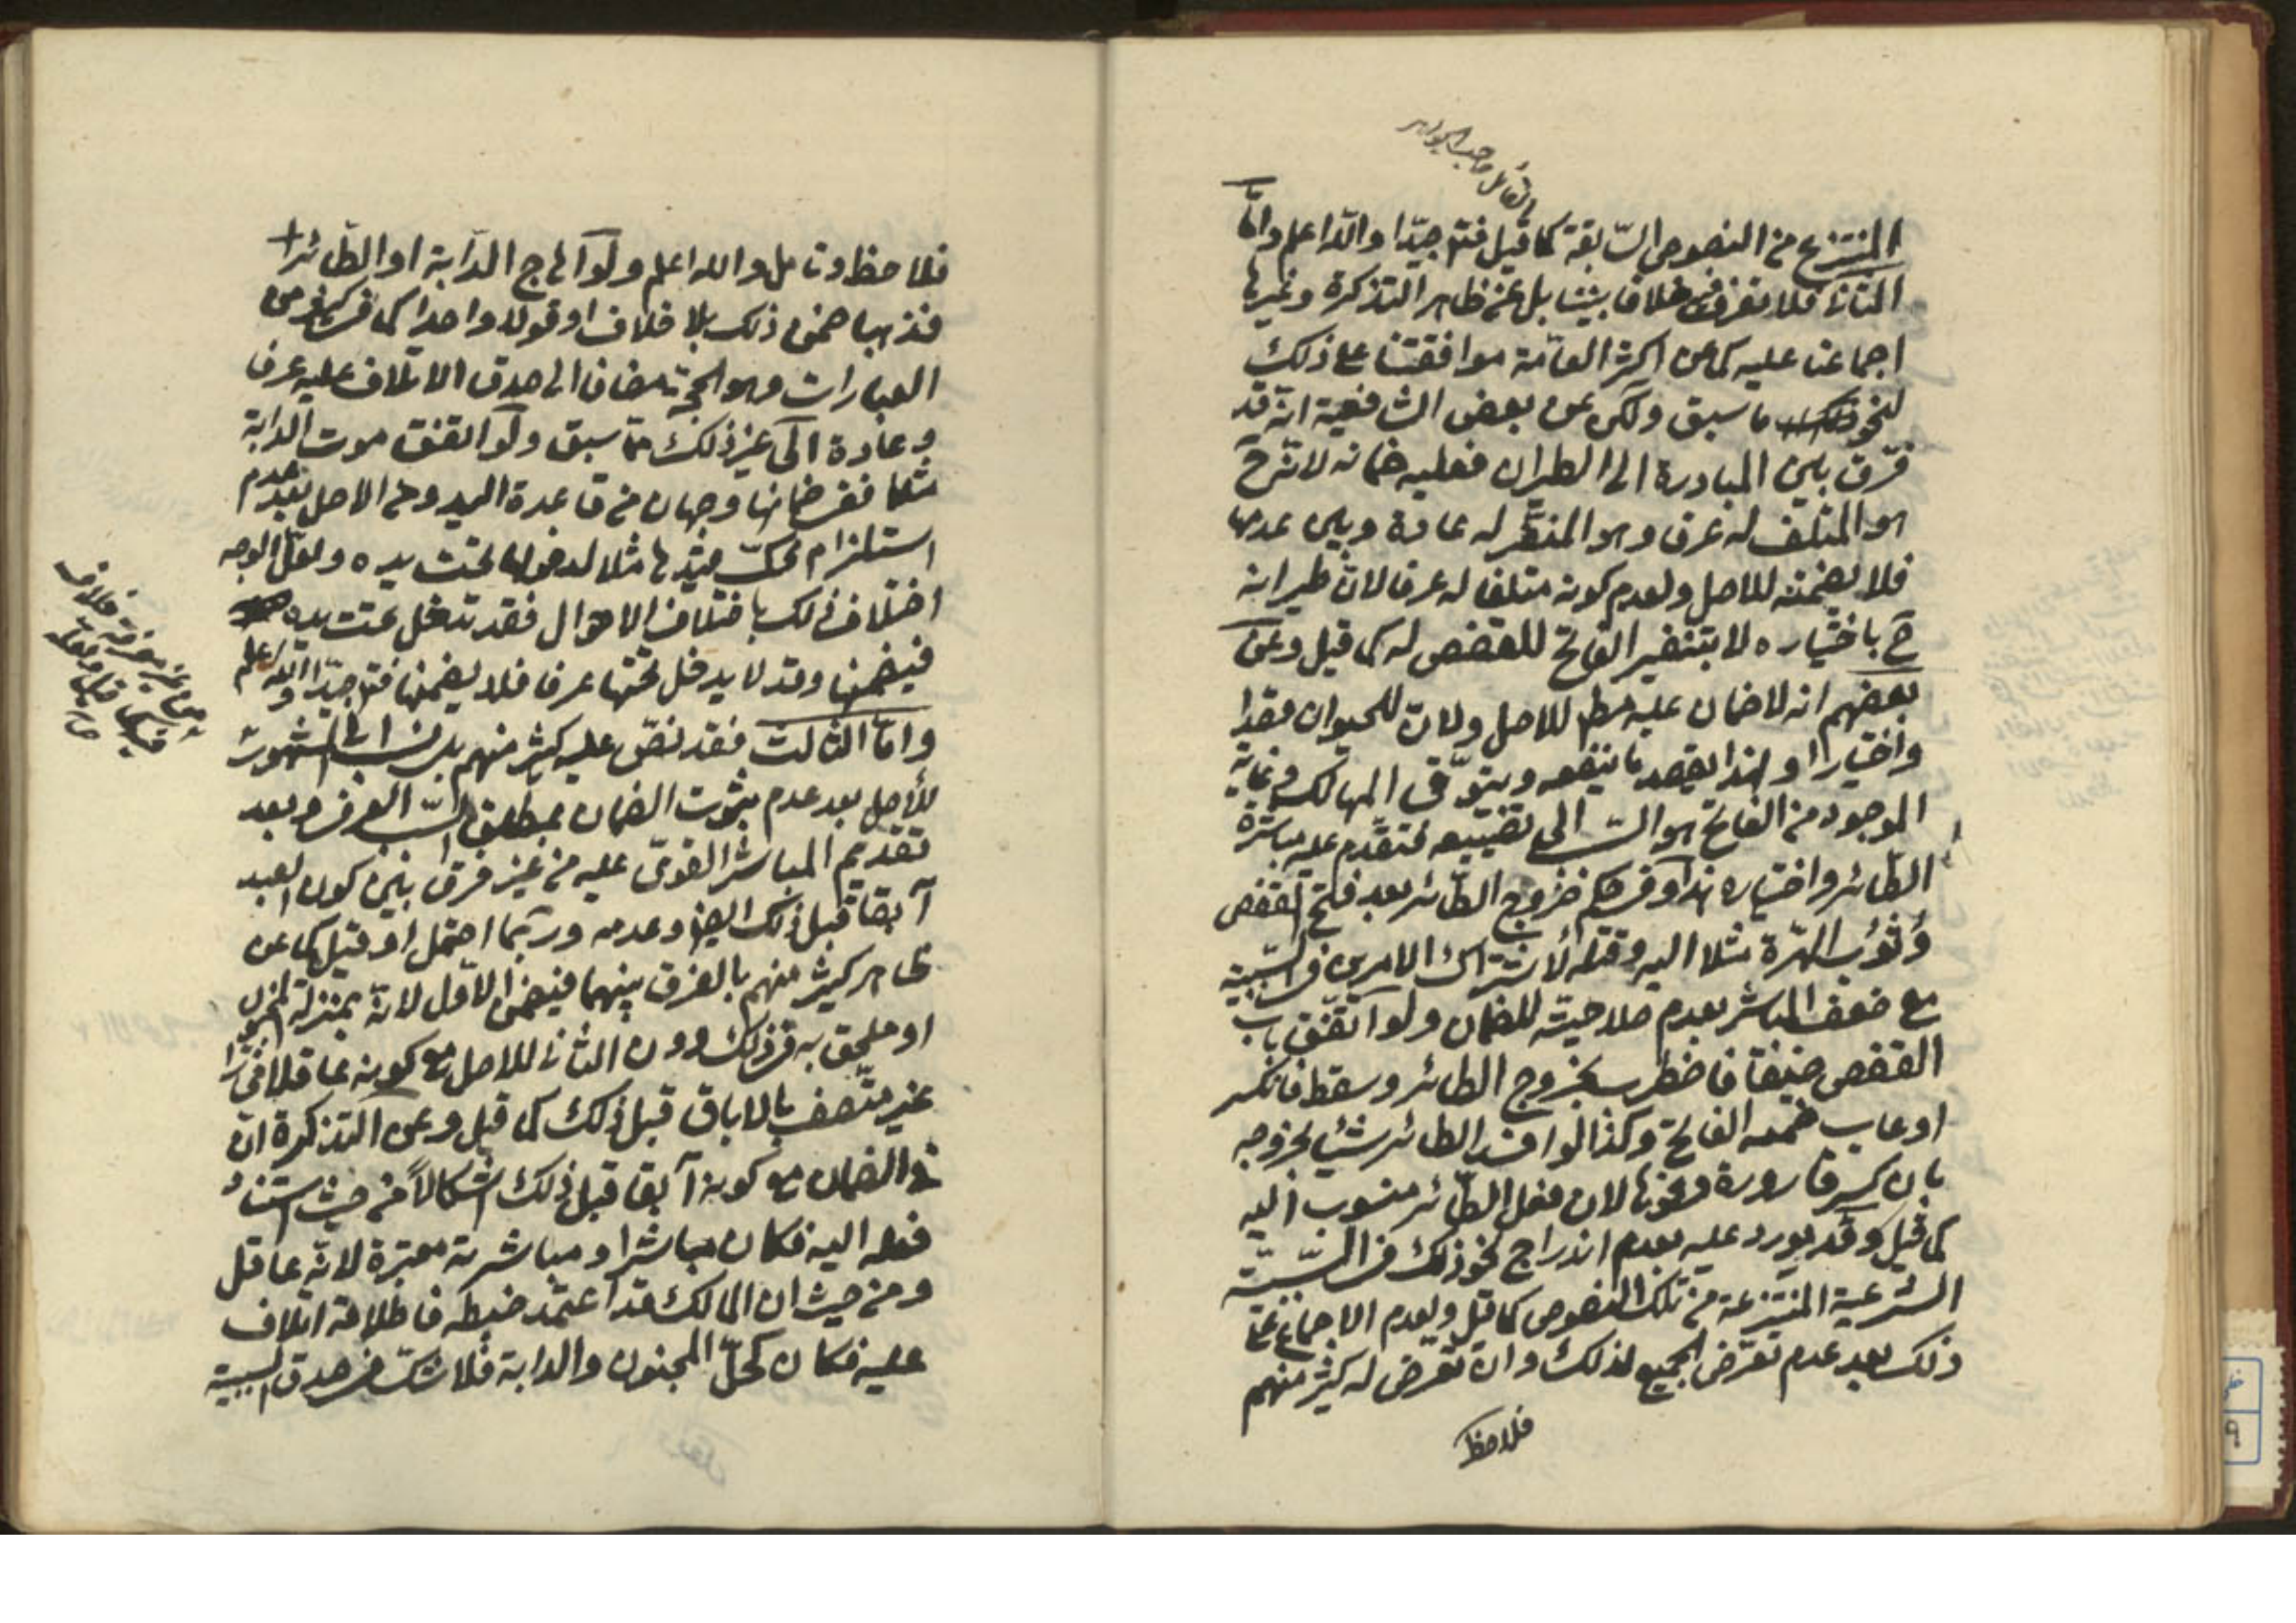 القائل صاحب الجواهر
المنتزع من النصوص السّابقة كما قيل فتأمّل جيّدا والله اعلم وامّا
الثاني فلا نعرف فيه خلافا بيننا بل عن ظاهر التذكرة وغيرها
اجماعنا عليه كما عن اكثر العامّة موافقتنا على ذلك
لنحو ما سبق ولكن عن بعض الشافعية انّه قد
فرّق بين المبادرة الى الطيران فعليه ضمانه لانّه ح
هو المتلف له عرفا وهو المنفّر له عادة وبين عدمها
فلا يضمنه للاصل ولعدم كونه متلفا له عرفا لانّ طيرانه
ح باختياره لا بتنفير الفاتح للقفص له كما قيل وعن
بعضهم انه لا ضمان عليه مط للاصل ولانّ للحيوان قصدا
واختيارا ولهذا يقصد ما ينفعه ويتوقّى المهالك وغاية
الموجود من الفاتح هو السّبب الى تضييعه فتقدّم عليه مباشرة
الطائر واختياره هذا وفي حكم خروج الطّائر بعد فتح القفص
وثوب الهرّة مثلا اليه وقتله لاشتراك الامرين في السّببيّة
مع ضعف المباشر بعدم صلاحيته للضمان ولو اتّفق باب
القفص ضيّقا فاضطرب بخروج الطائر وسقط فانكسر
او عاب ضمنه الفاتح وكذا لو افسد الطائر شيئا بخروجه
بان كسر قارورة ونحوها لان فعل الطّائر منسوب اليه
كما قيل وقد يورد عليه بعدم اندراج نحو ذلك في السّببيّة
الشرعية المنتزعة من تلك النصوص كما قيل ولعدم الاجماع على
ذلك بعد عدم تعرّض الجميع لذلك وان تعرّض له كثير منهم
فلاحظ
فلاحظ وتأمل والله اعلم ولو اهاج الدّابة او الطّائر
فذهبا ضمن ذلك بلا خلاف او قولا واحدا كما في بعض
العبارات وهو الحجّة مضافا الى صدق الاتلاف عليه عرفا
وعادة الى غير ذلك ممّا سبق ولو اتّفق موت الدّابة
مثلا ففي ضمانها وجهان من قاعدة اليد ومن الاصل بعد عدم
استلزام فكّ قيدها مثلا لدخولها تحت يده ولعلّ الوجه
اختلاف ذلك باختلاف الاحوال فقد تدخل تحت يده
فيضمنها وقد لا يدخل تحتها عرفا فلا يضمنها فتأمل جيّدا والله اعلم
وامّا الثالث فقد نصّ عليه كثير منهم بل نسب الى الشهرة
للأصل بعد عدم ثبوت الضمان بمطلق السّبب العرفي وبعد
تقديم المباشر القويّ عليه من غير فرق بين كون العبد
آبقا قبل ذلك ايضا وعدمه وربّما احتمل او قيل كما عن
ظاهر كثير منهم بالفرق بينهما فيضمن الاوّل لانّه بمنزلة المجنون
او ملحق به في ذلك دون الثاني للاصل مع كونه عاقلا مختارا
غير متّصف بالاباق قبل ذلك كما قيل وعن التذكرة انّ
في الضمان مع كونه آبقا قبل ذلك اشكالاً من حيث استناد
فعله اليه فكان مباشرا ومباشرته معتبرة لانّه عاقل
ومن حيث ان المالك قد اعتمد ضبطه فاطلاقه اتلاف
عليه فكان كحلّ المجنون والدابة فلا شكّ في صدق السببية